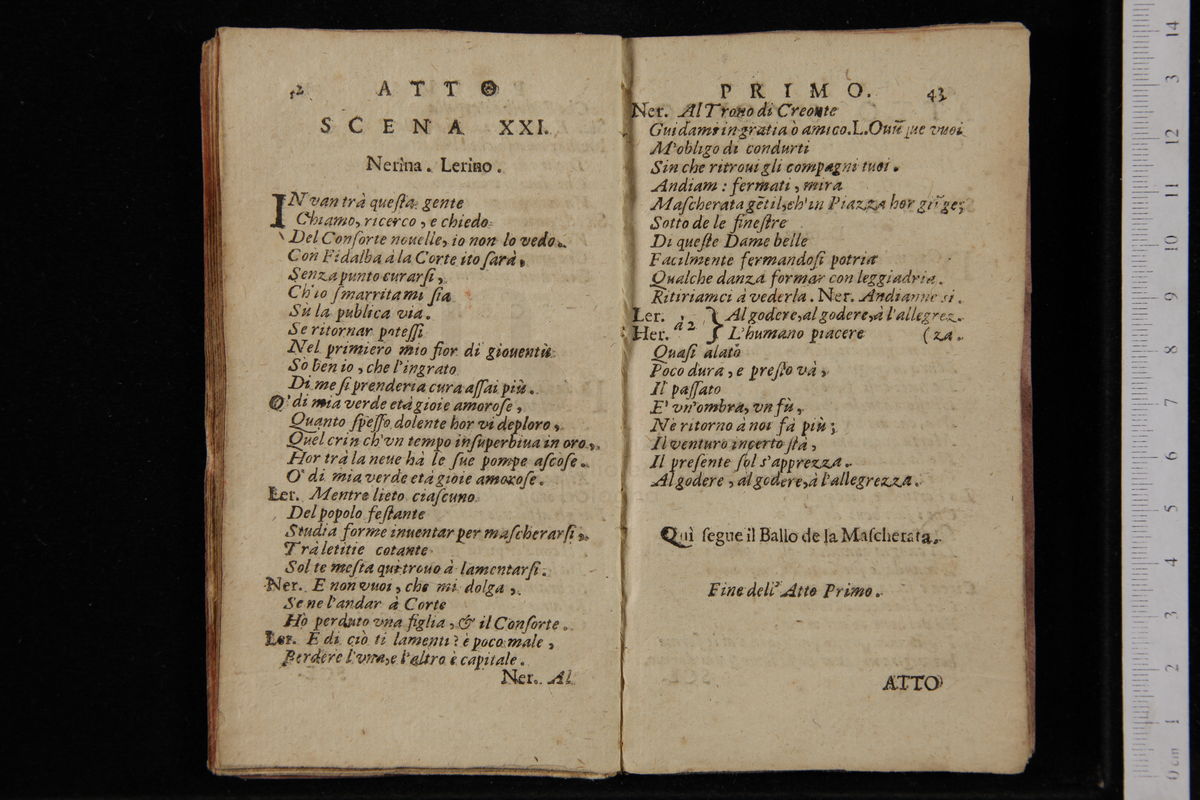 42 ATTO
SCENA XXI.
Nerina. Lerino.
INvan trà questa gente
Chiamo, ricerco, e chiedo
Del Consorte nouelle, io non lo vedo.
Con Fidalba à la Corte ito sarà,
Senza punto curarsi,
Ch'io smarrita mi sia
Sù la publica via.
Se ritornar potessi
Nel primiero mio fior di giouentù
Sò ben io, che l'ingrato
Di me si prenderia cura assai più.
O' di mia verde età gioie amorose,
Quanto spesso dolente hor vi deploro,
Quel crin ch'vn tempo insuperbiua in oro,
Hor trà la neue hà le sue pompe ascose.
O' di mia verde età gioie amorose.
Ler. Mentre lieto ciascuno
Del popolo festante
Studia forme inuentar per mascherarsi,
Trà letitie cotante
Sol te mesta qui trouo à lamentarsi.
Ner. E non vuoi, che mi dolga,
Se ne l'andar à Corte
Hò perduto vna figlia, & il Consorte.
Ler. E di ciò ti lamenti? è poco male,
Perdere l'vna, e l'altro è capitale.
Ner. Al
PRIMO. 43
Ner. Al Trono di Creonte
Guidami in gratia ò amico. L. Ouũque vuoi
M'obligo di condurti
Sin che ritroui gli compagni tuoi.
Andiam: fermati, mira
Mascherata gẽtil, ch'in Piazza hor giũge;
Sotto de le finestre
Di queste Dame belle
Facilmente fermandosi potria
Qualche danza formar con leggiadria.
Ritiriamci à vederla. Ner. Andianne si.
Ler. à 2 } Al godere, al godere, à l'allegrez-
Her. L'humano piacere (za.
Quasi alato
Poco dura, e presto và,
Il passato
E' vn'ombra, vn fù,
Nè ritorno à noi fà più;
Il venturo incerto stà,
Il presente sol s'apprezza.
Al godere, al godere, à l'allegrezza.
Quì segue il Ballo de la Mascherata.
Fine dell' Atto Primo.
ATTO